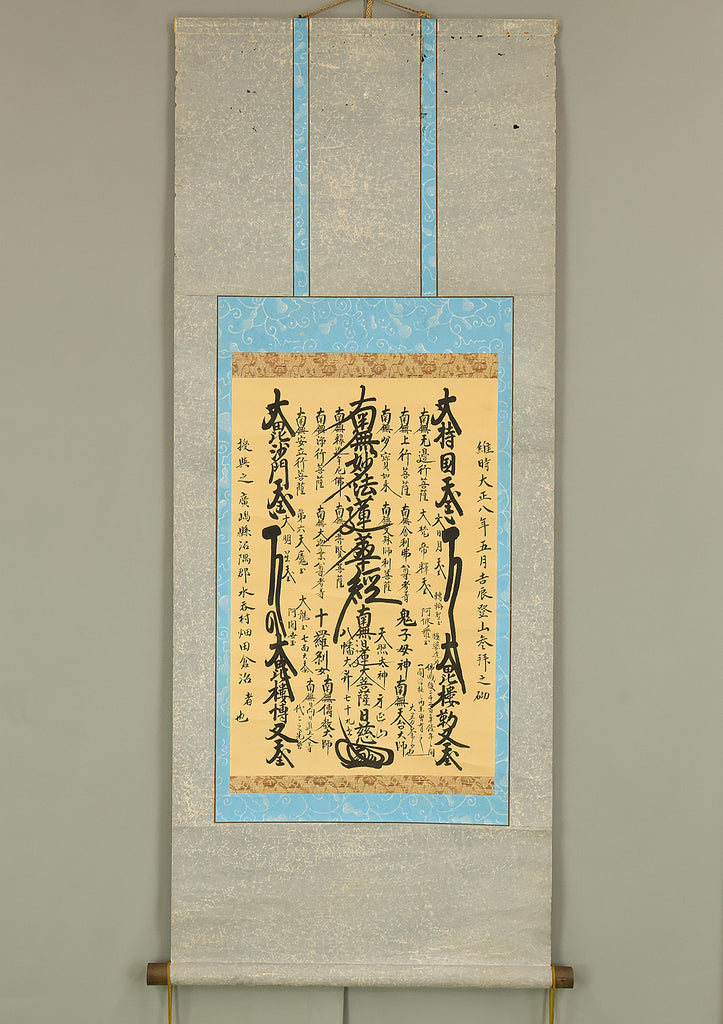 維時大正八年五月吉辰登山参拜之砌
大持国天王
大毘楼勒叉天王
南無无邊行菩薩
南無上行菩薩
南無多寳如来
南無妙法蓮華経
南無浄行菩薩
南無安立行菩薩
大毘沙門天王
大毘楼博叉天王
大日月天
大梵帝釈天
南無舎利弗尊者等
南無文殊師利菩薩
南無普賢菩薩
南無大迦葉尊者等
第六天魔王
大明星天
轉輪聖王
阿修羅王
鬼子母神
南無天台大師
天照大神
八幡大
南無日蓮大菩薩
日慈
七十九
十羅刹女
南無傳教大師
大龍王
阿闍世王
授與之 廣嶋縣沼隅郡水呑村畑田倉治者也